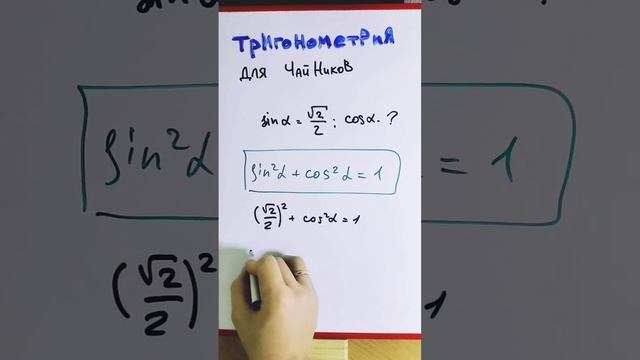 ТРИГОНОМЕТРИЯ
ДЛЯ ЧАЙНИКОВ
sinα = √2/2; cosα - ?
sin²α + cos²α = 1
(√2/2)² + cos²α = 1